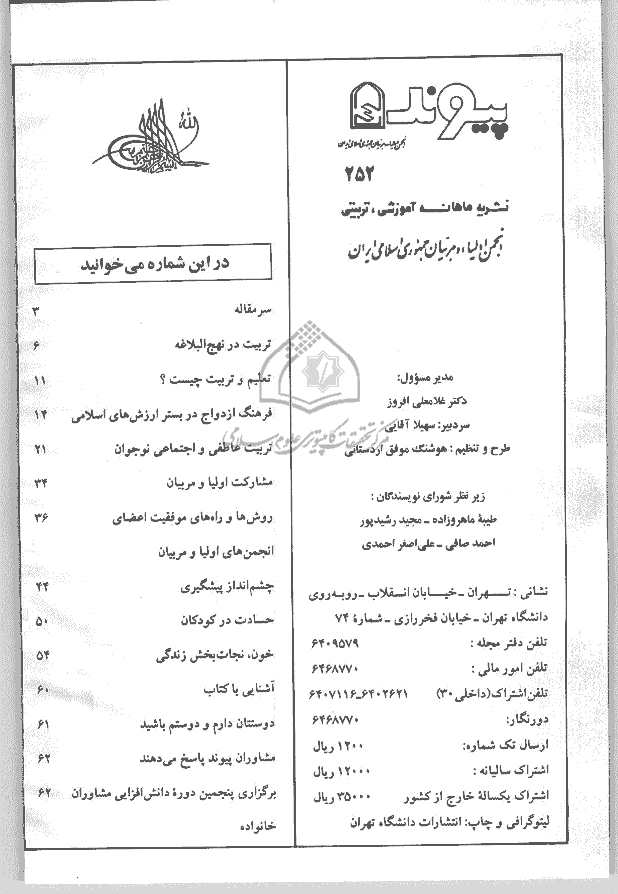 پیوند
انجمن اولیاء و مربیان جمهوری اسلامی ایران
۲۵۲
نشریه ماهانه آموزشی، تربیتی
انجمن اولیاء و مربیان جمهوری اسلامی ایران
مدیر مسؤول:
دکتر غلامعلی افروز
سردبیر: سهیلا آقایی
طرح و تنظیم: هوشنگ موفق اردستانی
زیر نظر شورای نویسندگان:
طیبهٔ ماهروزاده ـ مجید رشیدپور
احمد صافی ـ علی‌اصغر احمدی
نشانی: تهران ـ خیابان انقلاب ـ روبه‌روی
دانشگاه تهران ـ خیابان فخررازی ـ شمارهٔ ۷۴
تلفن دفتر مجله: ۶۴۰۹۵۷۹
تلفن امور مالی: ۶۴۶۸۷۷۰
تلفن اشتراک(داخلی ۳۰) ۶۴۰۲۶۲۱ـ۶۴۰۷۱۱۶
دورنگار: ۶۴۶۸۷۷۰
ارسال تک شماره: ۱۲۰۰ ریال
اشتراک سالیانه: ۱۲۰۰۰ ریال
اشتراک یکسالهٔ خارج از کشور ۳۵۰۰۰ ریال
لیتوگرافی و چاپ: انتشارات دانشگاه تهران
الله
در این شماره می‌خوانید
سرمقاله ۳
تربیت در نهج‌البلاغه ۶
تعلیم و تربیت چیست؟ ۱۱
فرهنگ ازدواج در بستر ارزش‌های اسلامی ۱۴
تربیت عاطفی و اجتماعی نوجوان ۲۱
مشارکت اولیا و مربیان ۳۴
روش‌ها و راه‌های موفقیت اعضای ۳۶
انجمن‌های اولیا و مربیان
چشم‌انداز پیشگیری ۴۴
حسادت در کودکان ۵۰
خون، نجات‌بخش زندگی ۵۴
آشنایی با کتاب ۶۰
دوستتان دارم و دوستم باشید ۶۱
مشاوران پیوند پاسخ می‌دهند ۶۲
برگزاری پنجمین دورهٔ دانش‌افزایی مشاوران ۶۲
خانواده
مرکز تحقیقات کامپیوتری علوم اسلامی